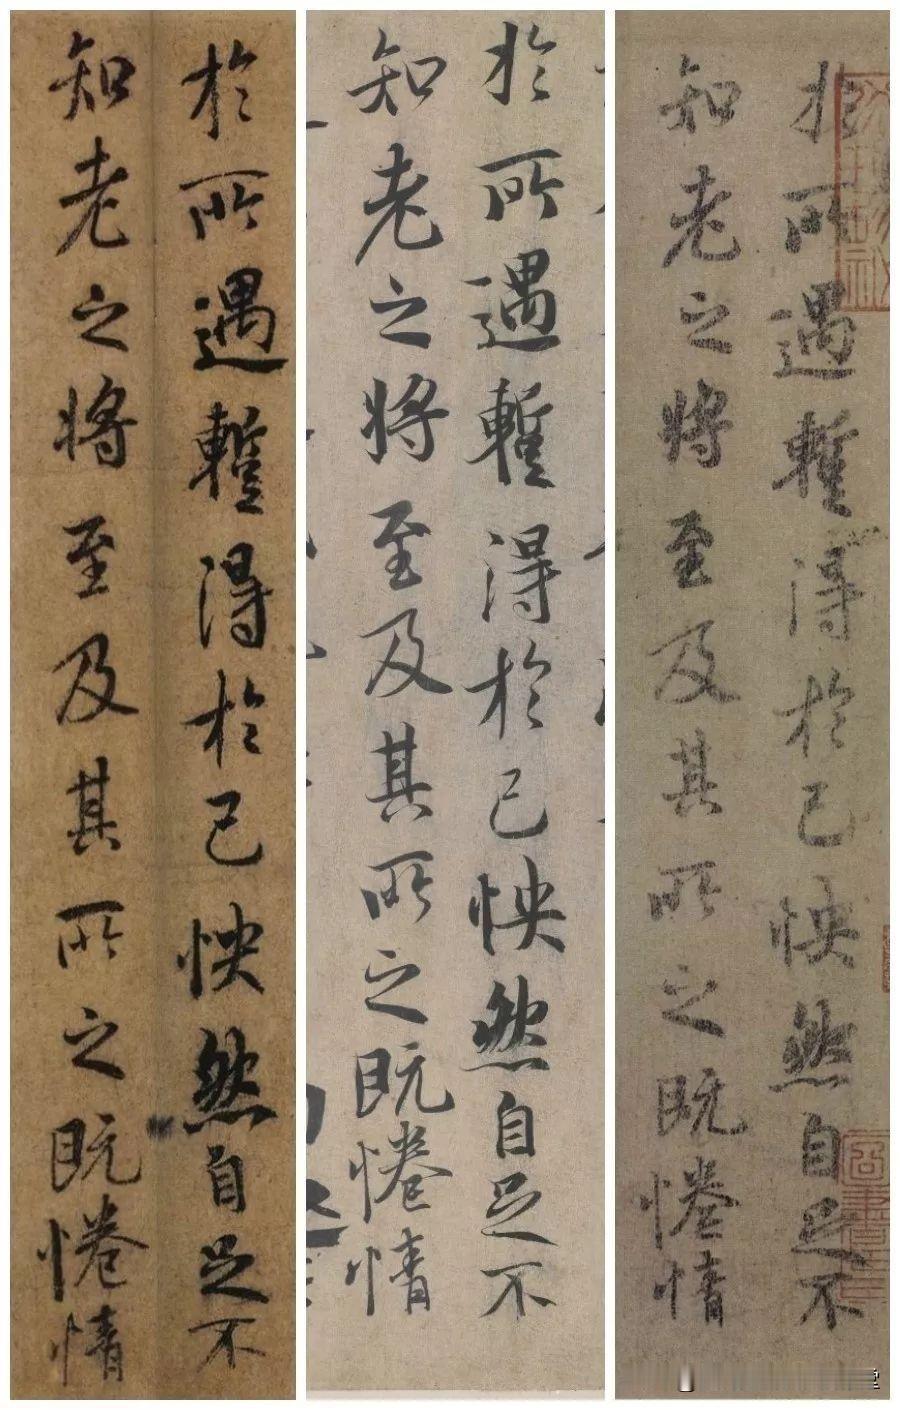 於所遇暫得於己怏然自足不
知老之将至及其所之既惓情
於所遇暫得於己怏然自足不
知老之将至及其所之既惓情
於所遇暫得於己怏然自足不
知老之将至及其所之既惓情